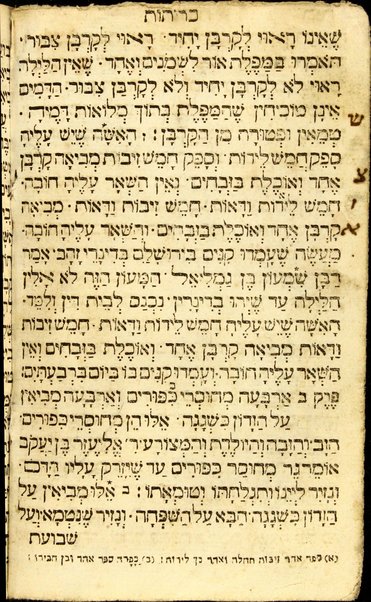 כריתות
שֶׁאֵינוֹ רָאוּי לְקָרְבַּן יָחִיד · רָאוּי לְקָרְבַּן צִבּוּר ·
תֹּאמְרוּ בְּמַפֶּלֶת אוֹר לִשְׁמֹנִים וְאֶחָד · שֶׁאֵין הַלַּיְלָה
רָאוּי לֹא לְקָרְבַּן יָחִיד וְלֹא לְקָרְבַּן צִבּוּר · הַדָּמִים
אֵינָן מוֹכִיחִין שֶׁהַמַּפֶּלֶת בְּתוֹךְ מְלוֹאות דָּמֶיהָ
טְמֵאִין וּפְטוּרָה מִן הַקָּרְבָּן : ז הָאִשָּׁה שֶׁיֵּשׁ עָלֶיהָ
סְפֵק חֲמֵשׁ לֵידוֹת · וּסְפֵק חֲמֵשׁ זִיבוֹת מְבִיאָה קָרְבָּן
אֶחָד וְאוֹכֶלֶת בַּזְּבָחִים · וְאֵין הַשְּׁאָר עָלֶיהָ חוֹבָה ·
חָמֵשׁ לֵידוֹת וַדָּאוֹת · חָמֵשׁ זִיבוֹת וַדָּאוֹת · מְבִיאָה
קָרְבָּן אֶחָד וְאוֹכֶלֶת בַּזְּבָחִים · וְהַשְּׁאָר עָלֶיהָ חוֹבָה ·
מַעֲשֶׂה שֶׁעָמְדוּ קִנִּים בִּירוּשָׁלַיִם בְּדִינְרֵי זָהָב · אָמַר
רַבָּן שִׁמְעוֹן בֶּן גַּמְלִיאֵל · הַמָּעוֹן הַזֶּה לֹא אָלִין
הַלַּיְלָה עַד שֶׁיְּהוּ בְּדִינָרִין · נִכְנַס לְבֵית דִּין וְלִמֵּד ·
הָאִשָּׁה שֶׁיֵּשׁ עָלֶיהָ חֲמֵשׁ לֵידוֹת וַדָּאוֹת · חֲמֵשׁ זִיבוֹת
וַדָּאוֹת מְבִיאָה קָרְבָּן אֶחָד · וְאוֹכֶלֶת בַּזְּבָחִים וְאֵין
הַשְּׁאָר עָלֶיהָ חוֹבָה · וְעָמְדוּ קִנִּים בּוֹ בַיּוֹם בְּרִבְעָתָיִם :
פֶּרֶק ב אַרְבָּעָה מְחוּסְּרֵי כִפּוּרִים וְאַרְבָּעָה מְבִיאִין
עַל הַזָּדוֹן כַּשְּׁגָגָה · אֵלּוּ הֵן מְחוּסְּרֵי כִפּוּרִים ·
הַזָּב · וְהַזָּבָה וְהַיּוֹלֶדֶת וְהַמְּצוֹרָע · ר׳ אֱלִיעֶזֶר בֶּן יַעֲקֹב
אוֹמֵר גֵּר מְחוּסַּר כִּפּוּרִים עַד שֶׁיִּזָּרֵק עָלָיו הַדָּם ·
וְנָזִיר לְיֵינוֹ וְתִגְלַחְתּוֹ וְטוּמְאָתוֹ : ב אֵלּוּ מְבִיאִין עַל
הַזָּדוֹן כַּשְּׁגָגָה · הַבָּא עַל הַשִּׁפְחָה · וְנָזִיר שֶׁנִּטְמָא · וְעַל
שבועת
(א) ספר אחר זיבות תחלה ואחר כך לידות : (ב) כַּפָּרָה ספר אחר וכן חבירו :
ש
צ
י
א